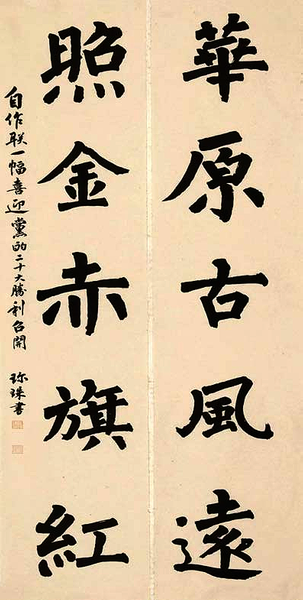 華原古風遠
照金赤旗紅
自作联一幅喜迎黨的二十大勝利召開
珍珠書